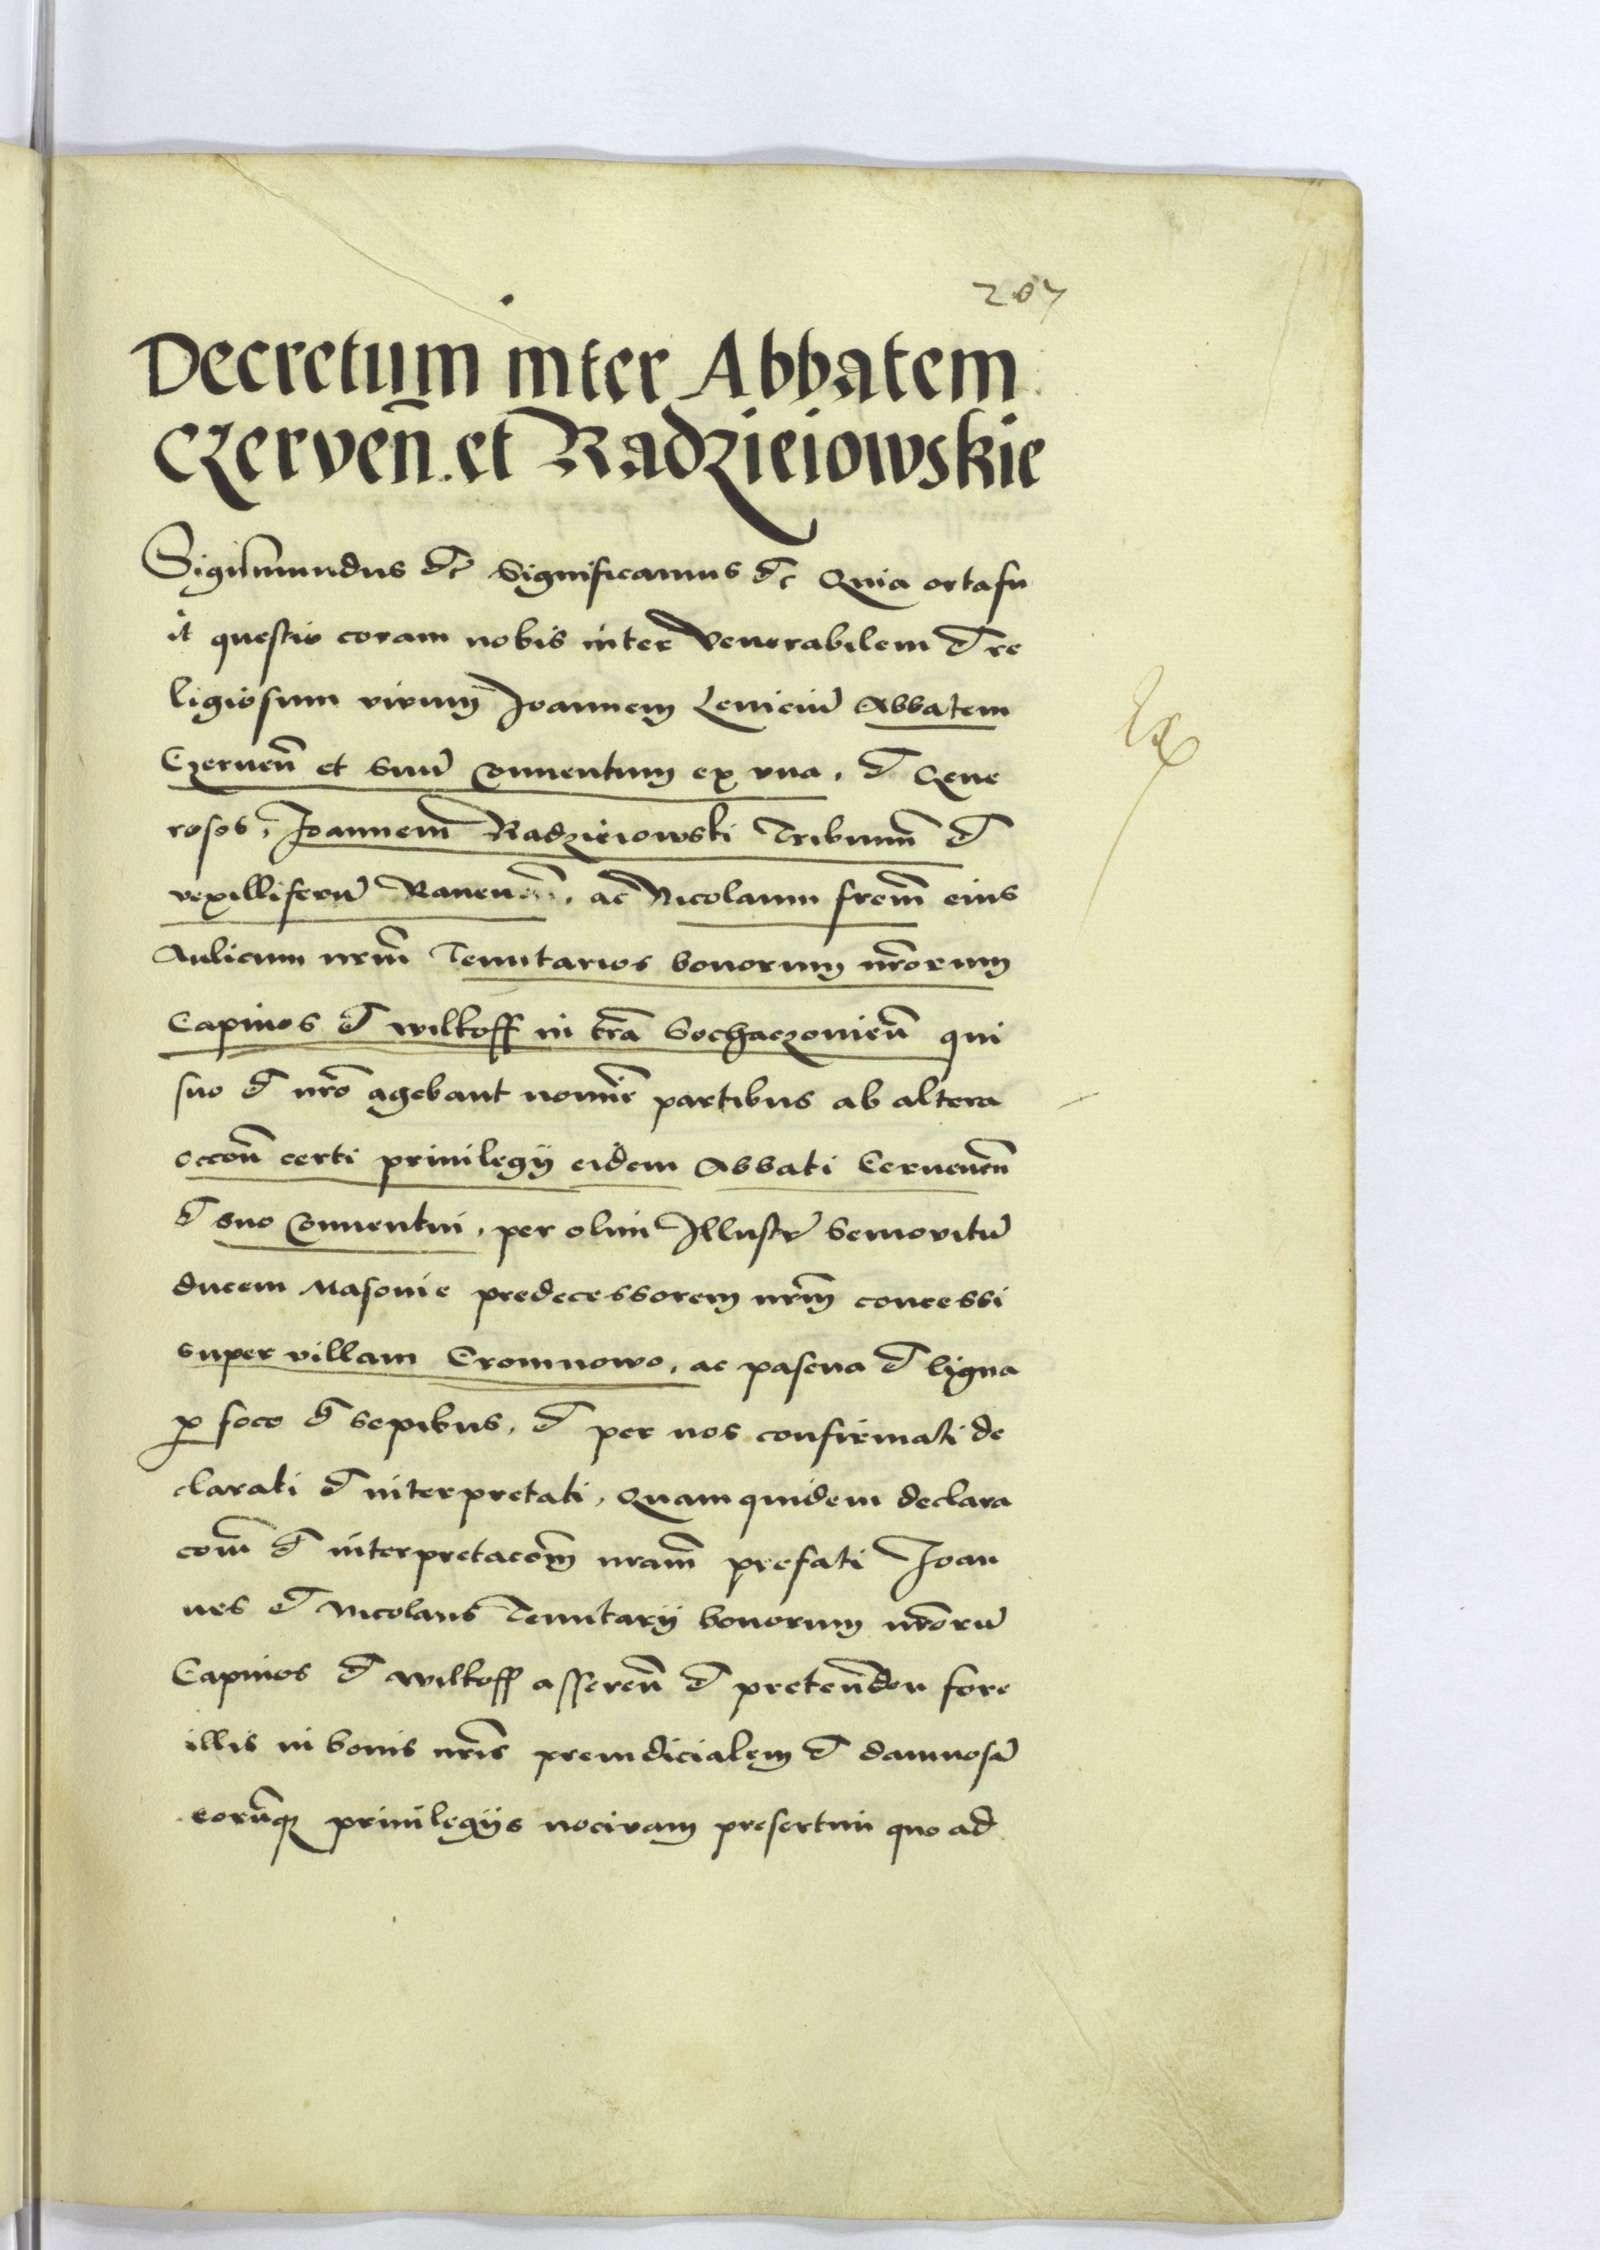 207
Decretum inter Abbatem
Czerveñ. et Radzieiowskie
Sigismundus etc Significamus etc Quia orta fu
it questio coram nobis inter Venerabilem et re
ligiosum virum Joannem Abbatem
Czerueñ et suũ Conuentum ex vna, et Gene
rosos, Joannem Radzieiowski Tribunũ et
vexilliferũ ac Nicolaum frem̃ eius
Aulicum nrm̃ Tenutarios bonorum nrõrum
Capinos et wilkoff in trã Sochaczouieñ qui
suo et nrõ agebant nomine partibus ab altera
occoñe certi priuilegij eidem Abbati Ceruenen̄
et suo Conuentui, per olim Illustrẽ Semouitũ
ducem Masouie predecessorem nrm̃ concessi
super villam Cromnowo, ac pascua et ligna
p foco et sepibus, et per nos confirmati de
clarati et interpretati, Quam quidem declara
com̃ et interpretacom̃ nram̃ prefati Joan
nes et Nicolaus Tenutarij bonorum nrõrũ
Capinos et wilkoff assereñ et pretendeñ fore
illis in bonis nrĩs preiudicialem et damnosã
eorũq priuilegijs nociuam presertim quo ad